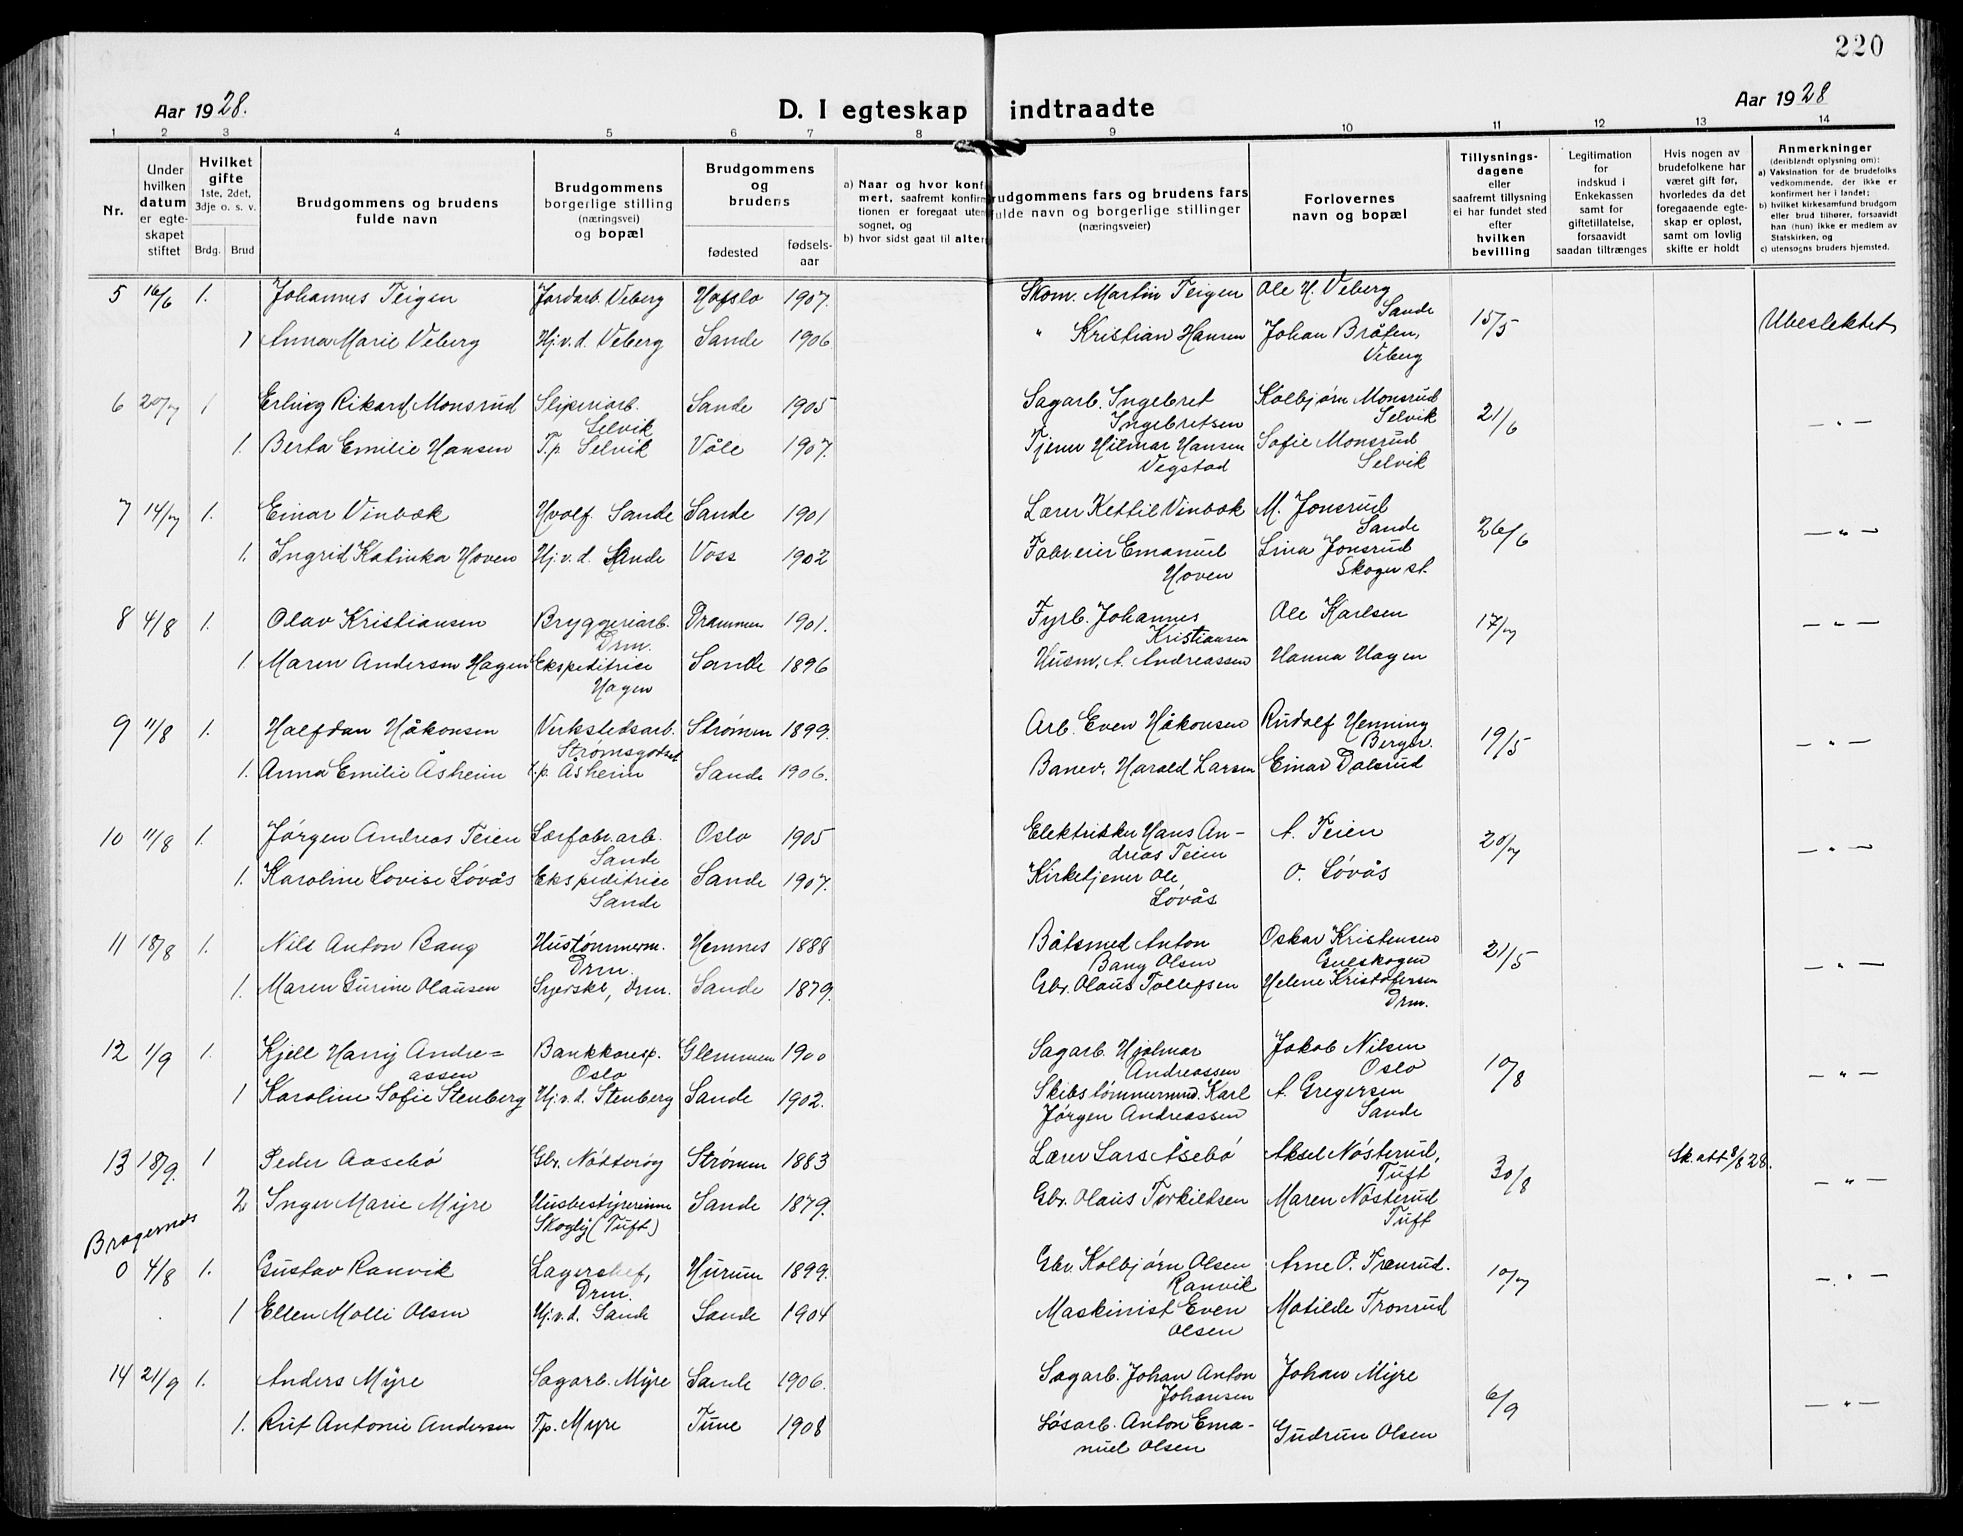 220
Aar 1928.
D. I egteskap indtraadte
Aar 1928
1 2 3 4 5 6 7 8 9 10 11 12 13 14
Nr.
Under hvilken datum er egteskapet stiftet
Hvilket gifte
1ste, 2det, 3dje o. s. v.
Brdg. Brud
Brudgommens og brudens fulde navn
Brudgommens borgerlige stilling (næringsvei) og bopæl
Brudgommens og brudens
fødested
fødsels-aar
a) Naar og hvor konfi
mert, saafremt konfirm
tionen er foregaat uten
sognet, og
b) hvor sidst gaat til alters
rudgommens fars og brudens fars
fulde navn og borgerlige stillinger
(næringsveier)
Forlovernes navn og bopæl
Tillysnings-dagene eller saafremt tillysning ei har fundet sted efter hvilken bevilling
Legitimation for indskud i Enkekassen samt for giftetillatelse, forsaavidt saadan tiltrænges
Hvis nogen av brudefolkene har været gift før, hvorledes da det foregaaende egteskap er opløst, samt om lovlig skifte er holdt
Anmerkninger
(deriblandt oplysning om):
a) Vaksination for de brudefolks vedkommende, der ikke er konfirmert her i landet;
b) hvilket kirkesamfund brudgom eller brud tilhører, forsaavidt han (hun) ikke er medlem av Statskirken, og
c) utensogns bruders hjemsted.
5 16/6 1. Johannes Teigen Jordarb. Veberg Hofslo 1907. Skom. Martin Teigen Ole H. Veberg Sande 15/5 Ubeslektet
1 Anna Marie Veberg Hj.v.d. Veberg Sande 1906. " Kristian Hansen Johan Bråten, Veberg
6 20/7 1 Erling Rikard Monsrud Sliperiarb. Selvik Sande 1905 Sagarb. Ingebret Ingebretsen Kolbjørn Monsrud Selvik 21/6 — " —
1. Berta Emilie Hansen T.p. Selvik Våle 1907. Tjener Hilmar Hansen Vegstad Sofie Monsrud Selvik
7 14/7 1. Einar Vinbok Hvalf. Sande Sande 1901 Lærer Kettil Vinbok M. Jonsrud Sande 26/6 — " —
1. Ingrid Katinka Hoven Hj.v.d. Sande Voss 1902 Fabreier Emanuel Hoven Lina Jonsrud Skoger st.
8 4/8 1. Olav Kristiansen Bryggeriarb. Drm. Drammen 1901. Fyrb. Johannes Kristiansen Ole Karlsen 17/7 — " —
1. Maren Andersen Hagen Ekspeditrice Hagen Sande 1896 Husm. A. Andreassen Hanna Hagen
9 11/8 1. Halfdan Håkonsen Verkstedsarb. Strømsgodset Strømm 1899. Arb. Even Håkonsen Rudolf Henning Berger. 19/5 — " —
1. Anna Emilie Åsheim t.p. Åsheim Sande 1906. Banev. Harald Larsen Einar Dalsrud
10 11/8 1. Jørgen Andreas Teien Lærfabr.arb. Sande Oslo 1905 Elektriker Hans Andreas Teien A. Teien 20/7 — " —
1. Karoline Lovise Løvås Ekspeditrice Sande Sande 1907. Kirketjener Ole Løvås O. Løvås
11 18/8 1. Nils Anton Bang Hustømmerm. Drm. Hemnes 1888 Båtsmed Anton Bang Olsen Oskar Kristensen Gulskogen 21/5 — " —
1. Maren Gurine Olausen Syerske, Drm. Sande 1879. Gbr. Olaus Tollefsen Helene Kristofersen Drm.
12 1/9 1. Kjell Harry Andre=assen Bankkoresp. Oslo Glemmen 1900 Sagarb. Hjalmar Andreassen Jakob Nilsen Oslo 10/8 — " —
1 Karoline Sofie Stenberg Hj.v.d. Stenberg Sande 1902. Skibstømmermd. Karl Jørgen Andreassen A. Gregersen Sande
13 18/9. 1 Peder Aasebø Gbr. Nøtterøy Strømm 1883 Lærer Lars Åsebø Aksel Nøsterud, Tuft 30/8 Sk.att 8/8 28. — " —
2 Inger Marie Myre Husbestyrerinne Skogly (Tuft) Sande 1879. Gbr. Olaus Torkildsen Maren Nøsterud Tuft
Bragernes
0 4/8 1. Gustav Ranvik Lagerchef, Drm. Hurum 1899. Gbr. Kolbjørn Olsen Ranvik Arne O. Tronrud. 10/7 — " —
1 Ellen Molli Olsen Hj.v.d. Sande Sande 1904 Maskinist Even Olsen Matilde Tronrud
14 21/9 1. Anders Myre Sagarb. Myre Sande 1906. Sagarb. Johan Anton Johansen Johan Myre 6/9 — " —
1. Rut Antonie Andersen Tp. Myre Tune 1908 Løsarb. Anton Emanuel Olsen Gudrun Olsen